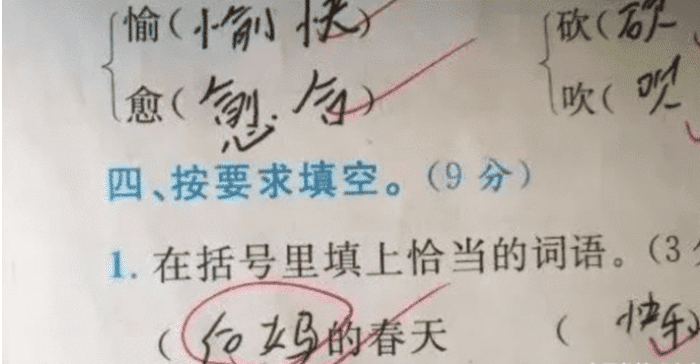 愉(愉快) 砍(砍
愈(愈合) 吹(吹
四、按要求填空。(9 分)
1. 在括号里填上恰当的词语。(3
( 妈的春天 (快乐)